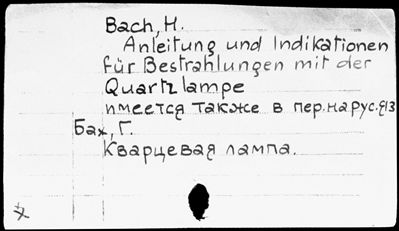 Bach, H.
Anleitung und Indikationen
für Bestrahlungen mit der
Quartzlampe
имеется также в пер. на рус. яз
Бах, Г.
Кварцевая лампа.